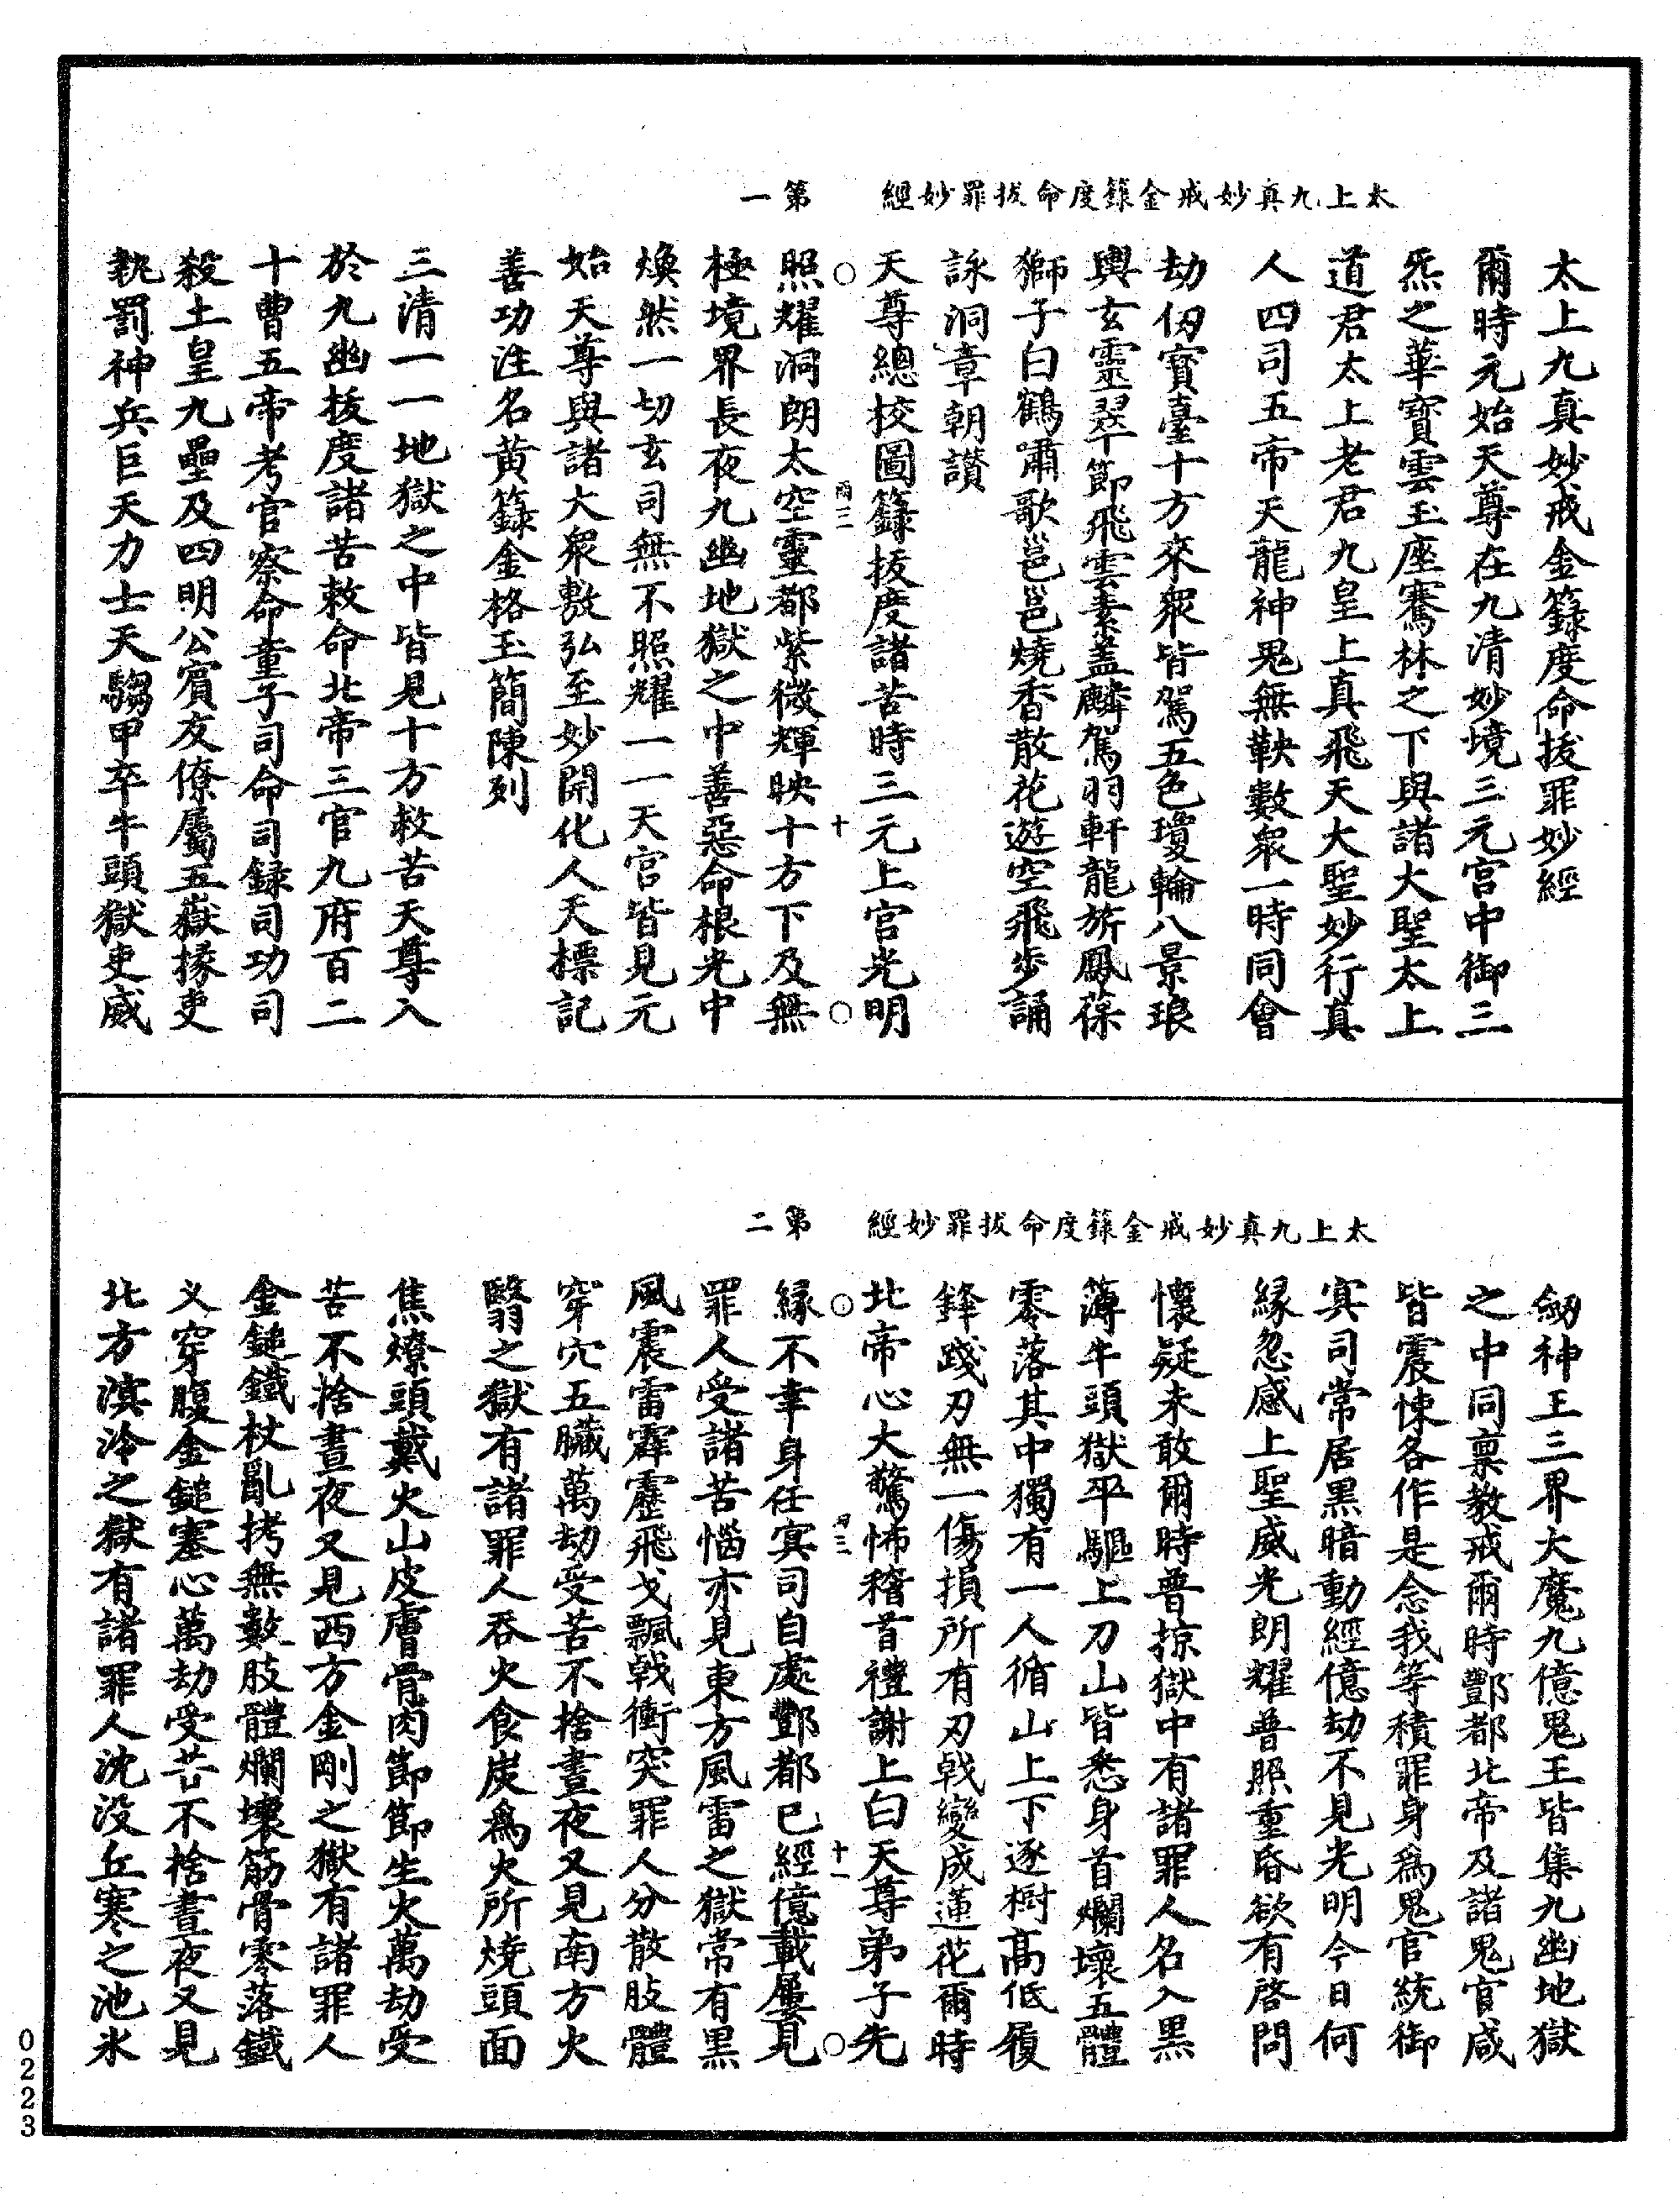 太上九真妙戒金籙度命拔罪妙經　第一
太上九真妙戒金籙度命拔罪妙經
爾時元始天尊在九清妙境三元宮中御三
炁之華寶雲玉座騫林之下與諸大聖太上
道君太上老君九皇上真飛天大聖妙行真
人四司五帝天龍神鬼無鞅數衆一時同會
劫仞寳臺十方來衆皆駕五色瓊輪八景琅
輿玄靈翠節飛雲素蓋麟駕羽軒龍旂鳳葆
獅子白鶴嘯歌邕邕燒香散花遊空飛步誦
詠洞章朝讃
天尊總校圖籙拔度諸苦時三元上宮光明
照耀洞朗太空靈都紫微輝映十方下及無
極境界長夜九幽地獄之中善惡命根光中
煥然一切玄司無不照耀一一天宮皆見元
始天尊與諸大衆敷弘至妙開化人天標記
善功注名黃籙金格玉簡陳列
三清一一地獄之中皆見十方救苦天尊入
於九幽拔度諸苦敕命北帝三官九府百二
十曹五帝考官察命童子司命司録司功司
殺土皇九壘及四明公賔友僚屬五嶽掾吏
執罰神兵巨天力士天騶甲卒牛頭獄吏威
太上九真妙戒金籙度命拔罪妙經　第二
劒神王三界大魔九億鬼王皆集九幽地獄
之中同稟教戒爾時酆都北帝及諸鬼官咸
皆震悚各作是念我等積罪身爲鬼官統御
冥司常居黑暗動經億劫不見光明今日何
緣忽感上聖威光朗耀普照重昏欲有啓問
懷疑未敢爾時普掠獄中有諸罪人名入黑
薄牛頭獄卒驅上刀山皆悉身首爛壞五體
零落其中獨有一人循山上下逐樹髙低履
鋒踐刃無一傷損所有刃戟變成蓮花爾時
北帝心大驚怖稽首禮謝上白天尊弟子先
緣不幸身任冥司自處酆都已經億載屢見
罪人受諸苦惱亦見東方風雷之獄常有黑
風震雷霹靂飛戈飄戟衝突罪人分散肢體
穿穴五臟萬劫受苦不捨晝夜又見南方火
翳之獄有諸罪人吞火食炭爲火所燒頭面
焦燎頭戴火山皮膚骨肉節節生火萬劫受
苦不捨晝夜又見西方金剛之獄有諸罪人
金鎚鐵杖亂拷無數肢體爛壞筋骨零落鐵
义穿腹金鎚塞心萬劫受苦不捨晝夜又見
北方溟泠之獄有諸罪人沈没丘寒之池氷
兩三
十
兩三
十一
0223